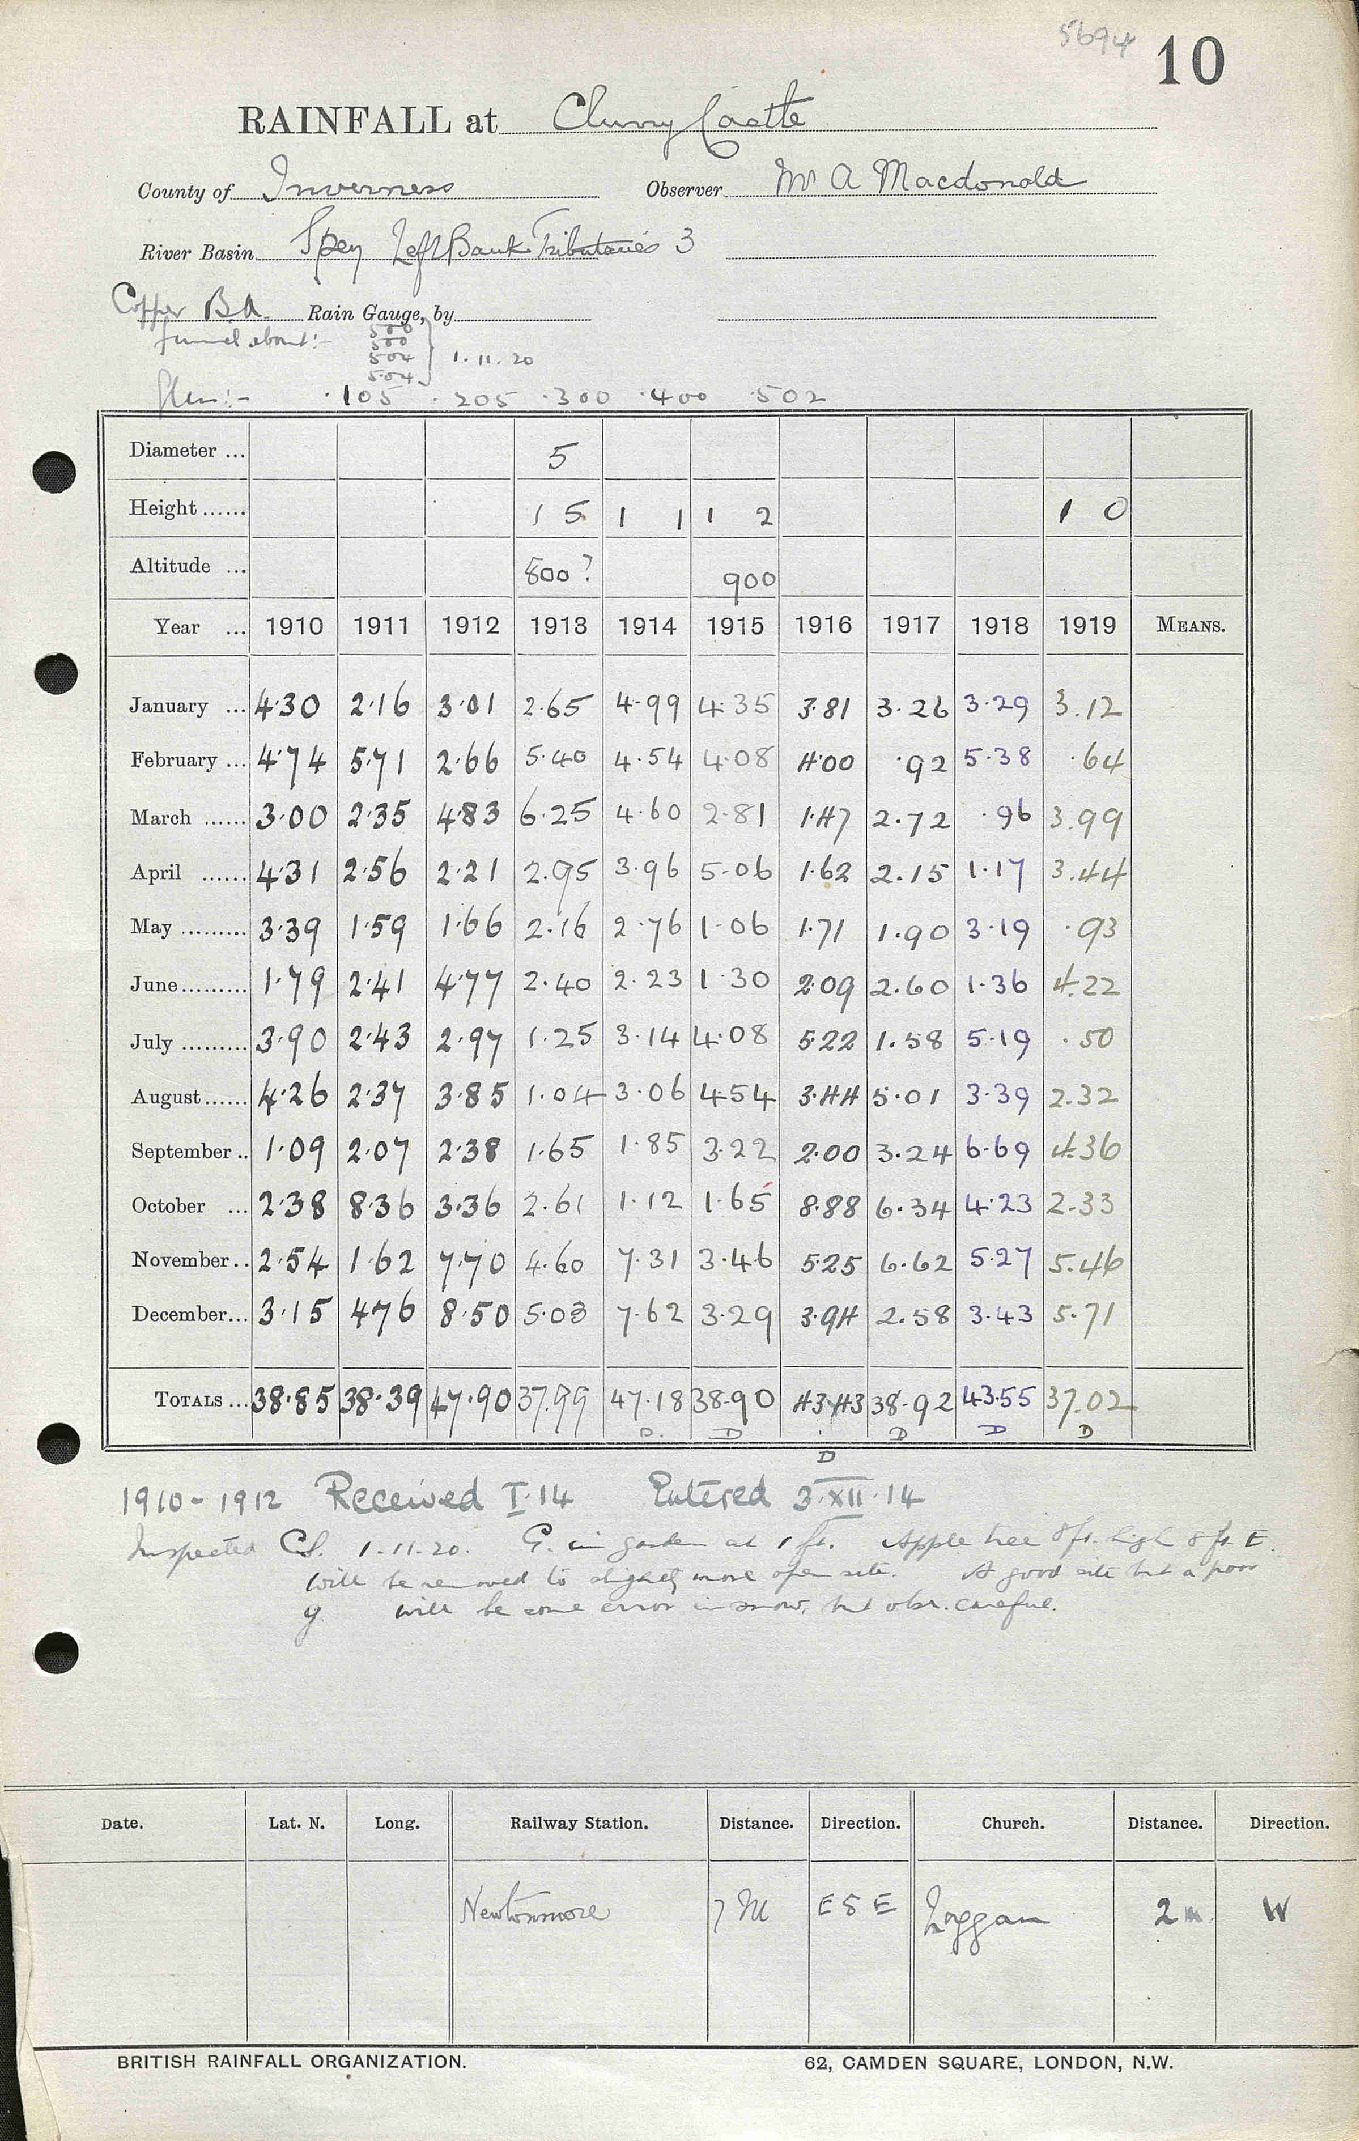 5694
10
RAINFALL at Cluny Castle
County of Inverness Observer Mr A Macdonald
River Basin Spey Left Bank Tributaries 3
Copper B.A. Rain Gauge, by
funnel about:- 500
500
504 } 1.11.20
504
Glass:- .105 .205 .300 .400 .502
Diameter ... 5
Height ...... 1 5 1 1 1 2 1 0
Altitude ... 800? 900
Year ... 1910 1911 1912 1913 1914 1915 1916 1917 1918 1919 MEANS.
January ... 4.30 2.16 3.01 2.65 4.99 4.35 3.81 3.26 3.29 3.12
February ... 4.74 5.71 2.66 5.40 4.54 4.08 4.00 .92 5.38 .64
March ...... 3.00 2.35 4.83 6.25 4.60 2.81 1.47 2.72 .96 3.99
April ...... 4.31 2.56 2.21 2.95 3.96 5.06 1.62 2.15 1.17 3.44
May ......... 3.39 1.59 1.66 2.16 2.76 1.06 1.71 1.90 3.19 .93
June ......... 1.79 2.41 4.77 2.40 2.23 1.30 2.09 2.60 1.36 4.22
July ......... 3.90 2.43 2.97 1.25 3.14 4.08 5.22 1.58 5.19 .50
August ...... 4.26 2.37 3.85 1.04 3.06 4.54 3.44 5.01 3.39 2.32
September .. 1.09 2.07 2.38 1.65 1.85 3.22 2.00 3.24 6.69 4.36
October ... 2.38 8.36 3.36 2.61 1.12 1.65 8.88 6.34 4.23 2.33
November .. 2.54 1.62 7.70 4.60 7.31 3.46 5.25 6.62 5.27 5.46
December ... 3.15 4.76 8.50 5.03 7.62 3.29 3.94 2.58 3.43 5.71
TOTALS ... 38.85 38.39 47.90 37.99 47.18 38.90 43.43 38.92 43.55 37.02
D. D D D D D
1910-1912 Received I.14 Entered 3.XII.14
Inspected C.S. 1.11.20. G. in garden at 1 ft. Apple tree 8 ft. high 8 ft. E.
will be removed to slightly more open site. A good site but a poor
g. will be some error in snow, but obsr. careful.
Date. Lat. N. Long. Railway Station. Distance. Direction. Church. Distance. Direction.
Newtonmore 7 M E S E Laggan 2 m W
BRITISH RAINFALL ORGANIZATION. 62, CAMDEN SQUARE, LONDON, N.W.